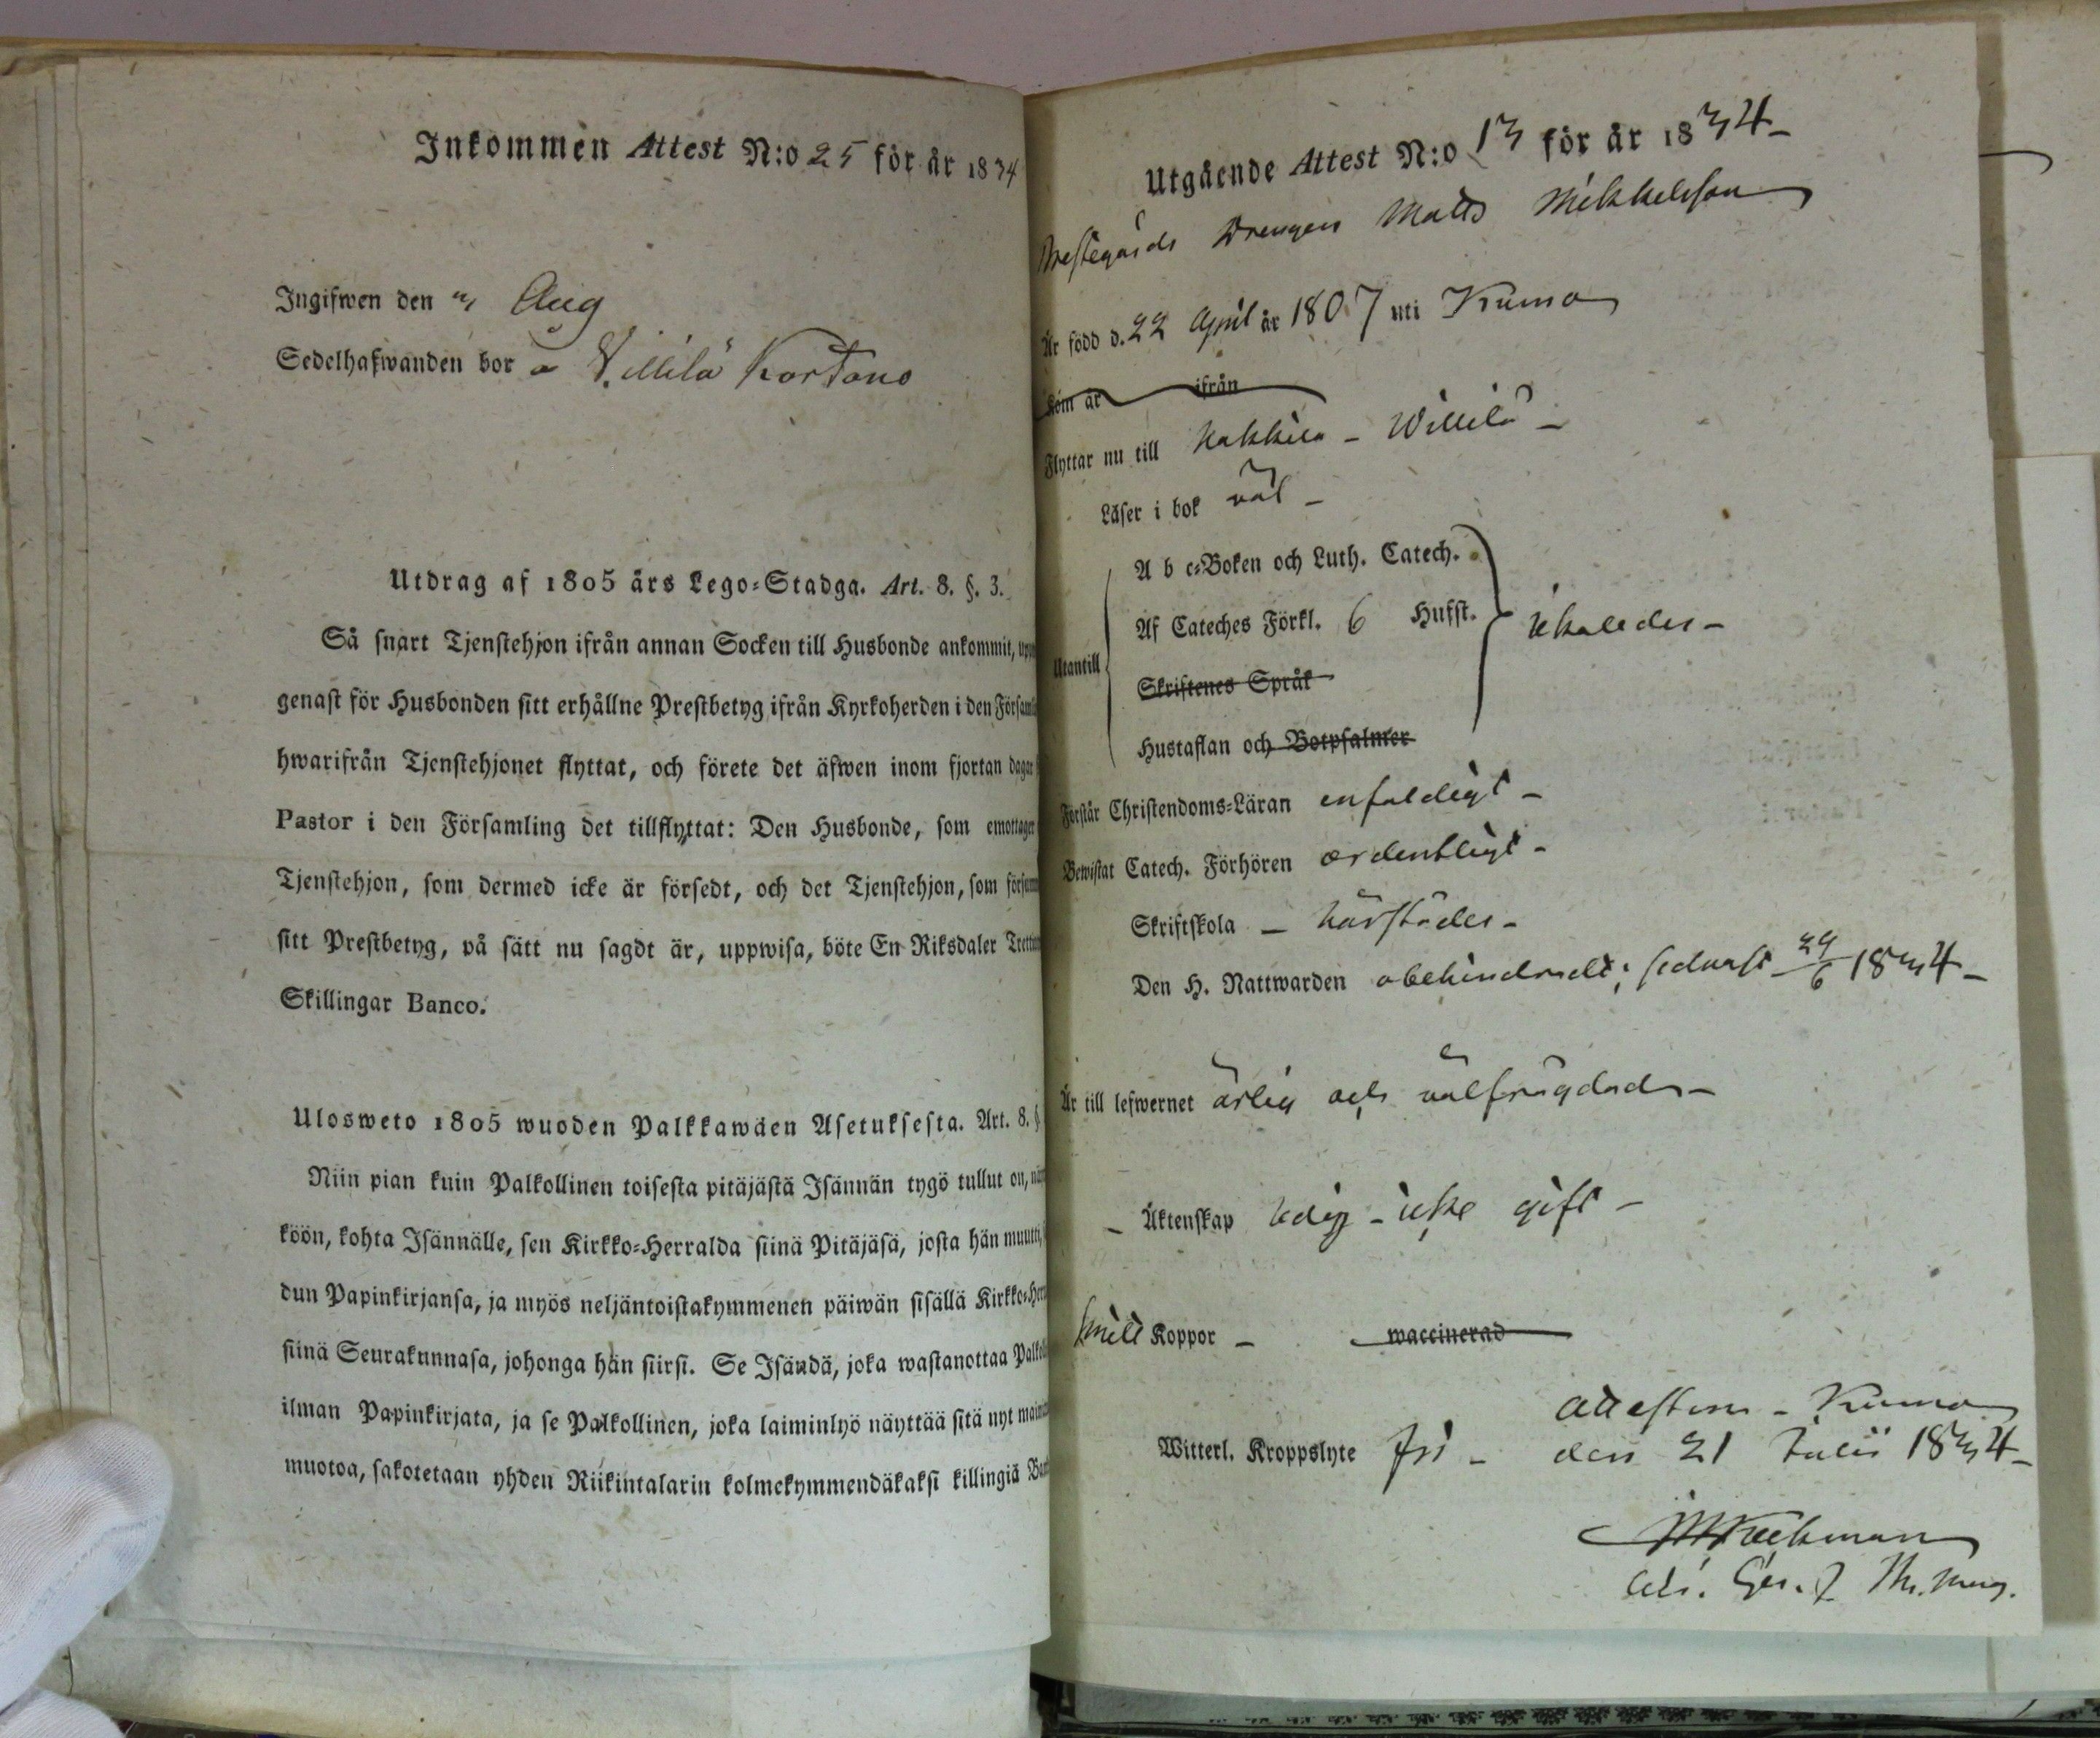 Inkommen Attest N:o 25 för år 1834
Ingifwen den " Aug
Sedelhafwanden bor å Villilä Kortano
Utdrag af 1805 års Lego-Stadga. Art. 8. §. 3.
Så snart Tjenstehjon ifrån annan Socken till Husbonde ankommit,
genast för Husbonden sitt erhållne Prestbetyg ifrån Kyrkoherden i den
hwarifrån Tjenstehjonet flyttat, och förete det äfwen inom fjortan dagar
Pastor i den Församling det tillflyttat: Den Husbonde, som emottager
Tjenstehjon, som dermed icke är försedt, och det Tjenstehjon, som
sitt Prestbetyg, på sätt nu sagdt är, uppwisa, böte En Riksdaler
Skillingar Banco.
Ulosweto 1805 wuoden Palkkawäen Asetuksesta. Art. 8. §
Niin pian kuin Palkollinen toisesta pitäjästä Isännän tygö tullut on,
köön, kohta Isännälle, sen Kirkko-Herralda siinä Pitäjäsä, josta hän muutti,
dun Papinkirjansa, ja myös neljäntoistakymmenen päiwän sisällä
siinä Seurakunnasa, johonga hän siirsi. Se Isändä, joka wastanottaa
ilman Papinkirjata, ja se Palkollinen, joka laiminlyö näyttää sitä nyt
muotoa, sakotetaan yhden Riikintalarin kolmekymmendäkaksi killingiä
Utgående Attest N:o 13 för år 1834-
Prestegårds Drengen Matts Mikkelsson
Är född d. 22 April år 1807 uti Kumo
Kom år ifrån
Flyttar nu till Kakkila - Willilä -
Läser i bok väl -
A b c-Boken och Luth. Catech.
Af Cateches Förkl. 6 Hufst.
Utantill
Skriftenes Språk
Hustaflan och Botpsalmer
Förstår Christendoms-Läran enfaldigt -
Bewistat Catech. Förhören ordentligt -
Skriftskola - härstädes -
Den H. Nattwarden obehindradt; sednast 29/6 1834 -
Är till lefwernet ärlig och välfrägdad -
- Äktenskap ledig - icke gift -
Koppor - waccinerad
Attesterar - Kumo
Witterl. Kroppslyte fri - den 21 Julii 1834 -